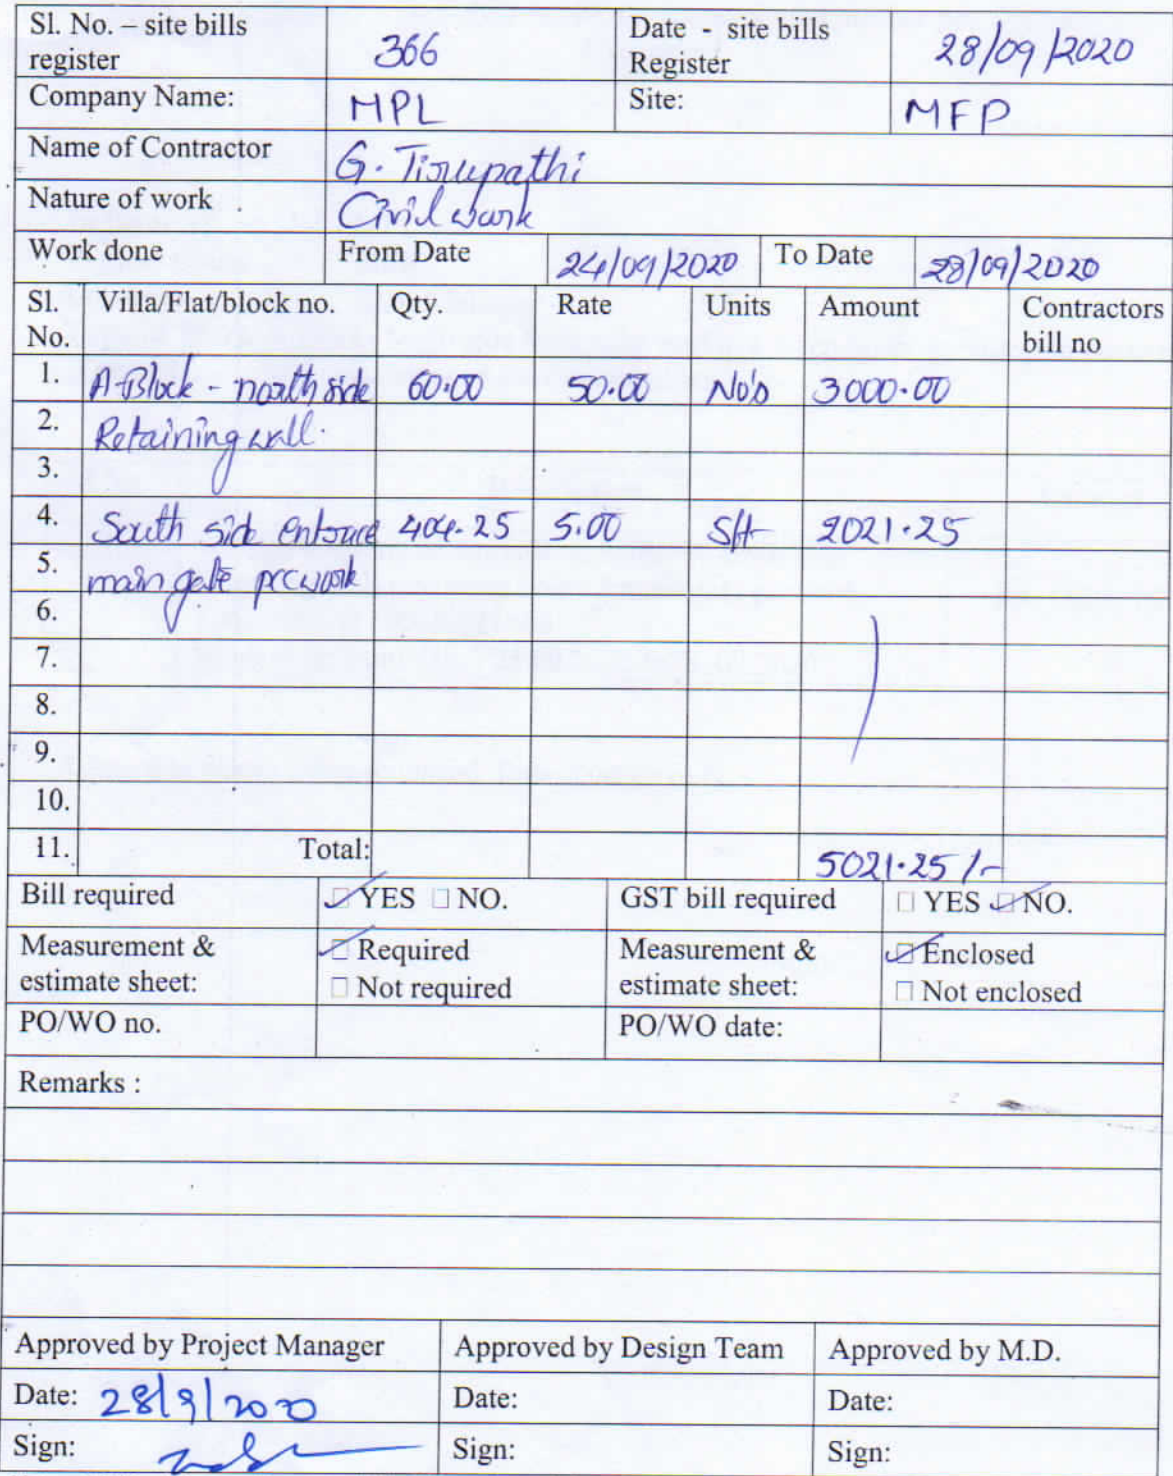 Sl. No. – site bills register 366 Date - site bills Register 28/09/2020
Company Name: MPL Site: MFP
Name of Contractor G. Tirupathi
Nature of work Civil work
Work done From Date 24/09/2020 To Date 28/09/2020
Sl. No. Villa/Flat/block no. Qty. Rate Units Amount Contractors bill no
1. A-Block - north side 60.00 50.00 No's 3000.00
2. Retaining wall.
3.
4. South side entrace 404.25 5.00 Sft 2021.25
5. main gate pcc work
6.
7.
8.
9.
10.
11. Total: 5021.25 /-
Bill required ☑ YES ☐ NO. GST bill required ☐ YES ☑ NO.
Measurement & estimate sheet: ☑ Required ☐ Not required Measurement & estimate sheet: ☑ Enclosed ☐ Not enclosed
PO/WO no. PO/WO date:
Remarks :
Approved by Project Manager Approved by Design Team Approved by M.D.
Date: 28/9/2020 Date: Date:
Sign: Sign: Sign: